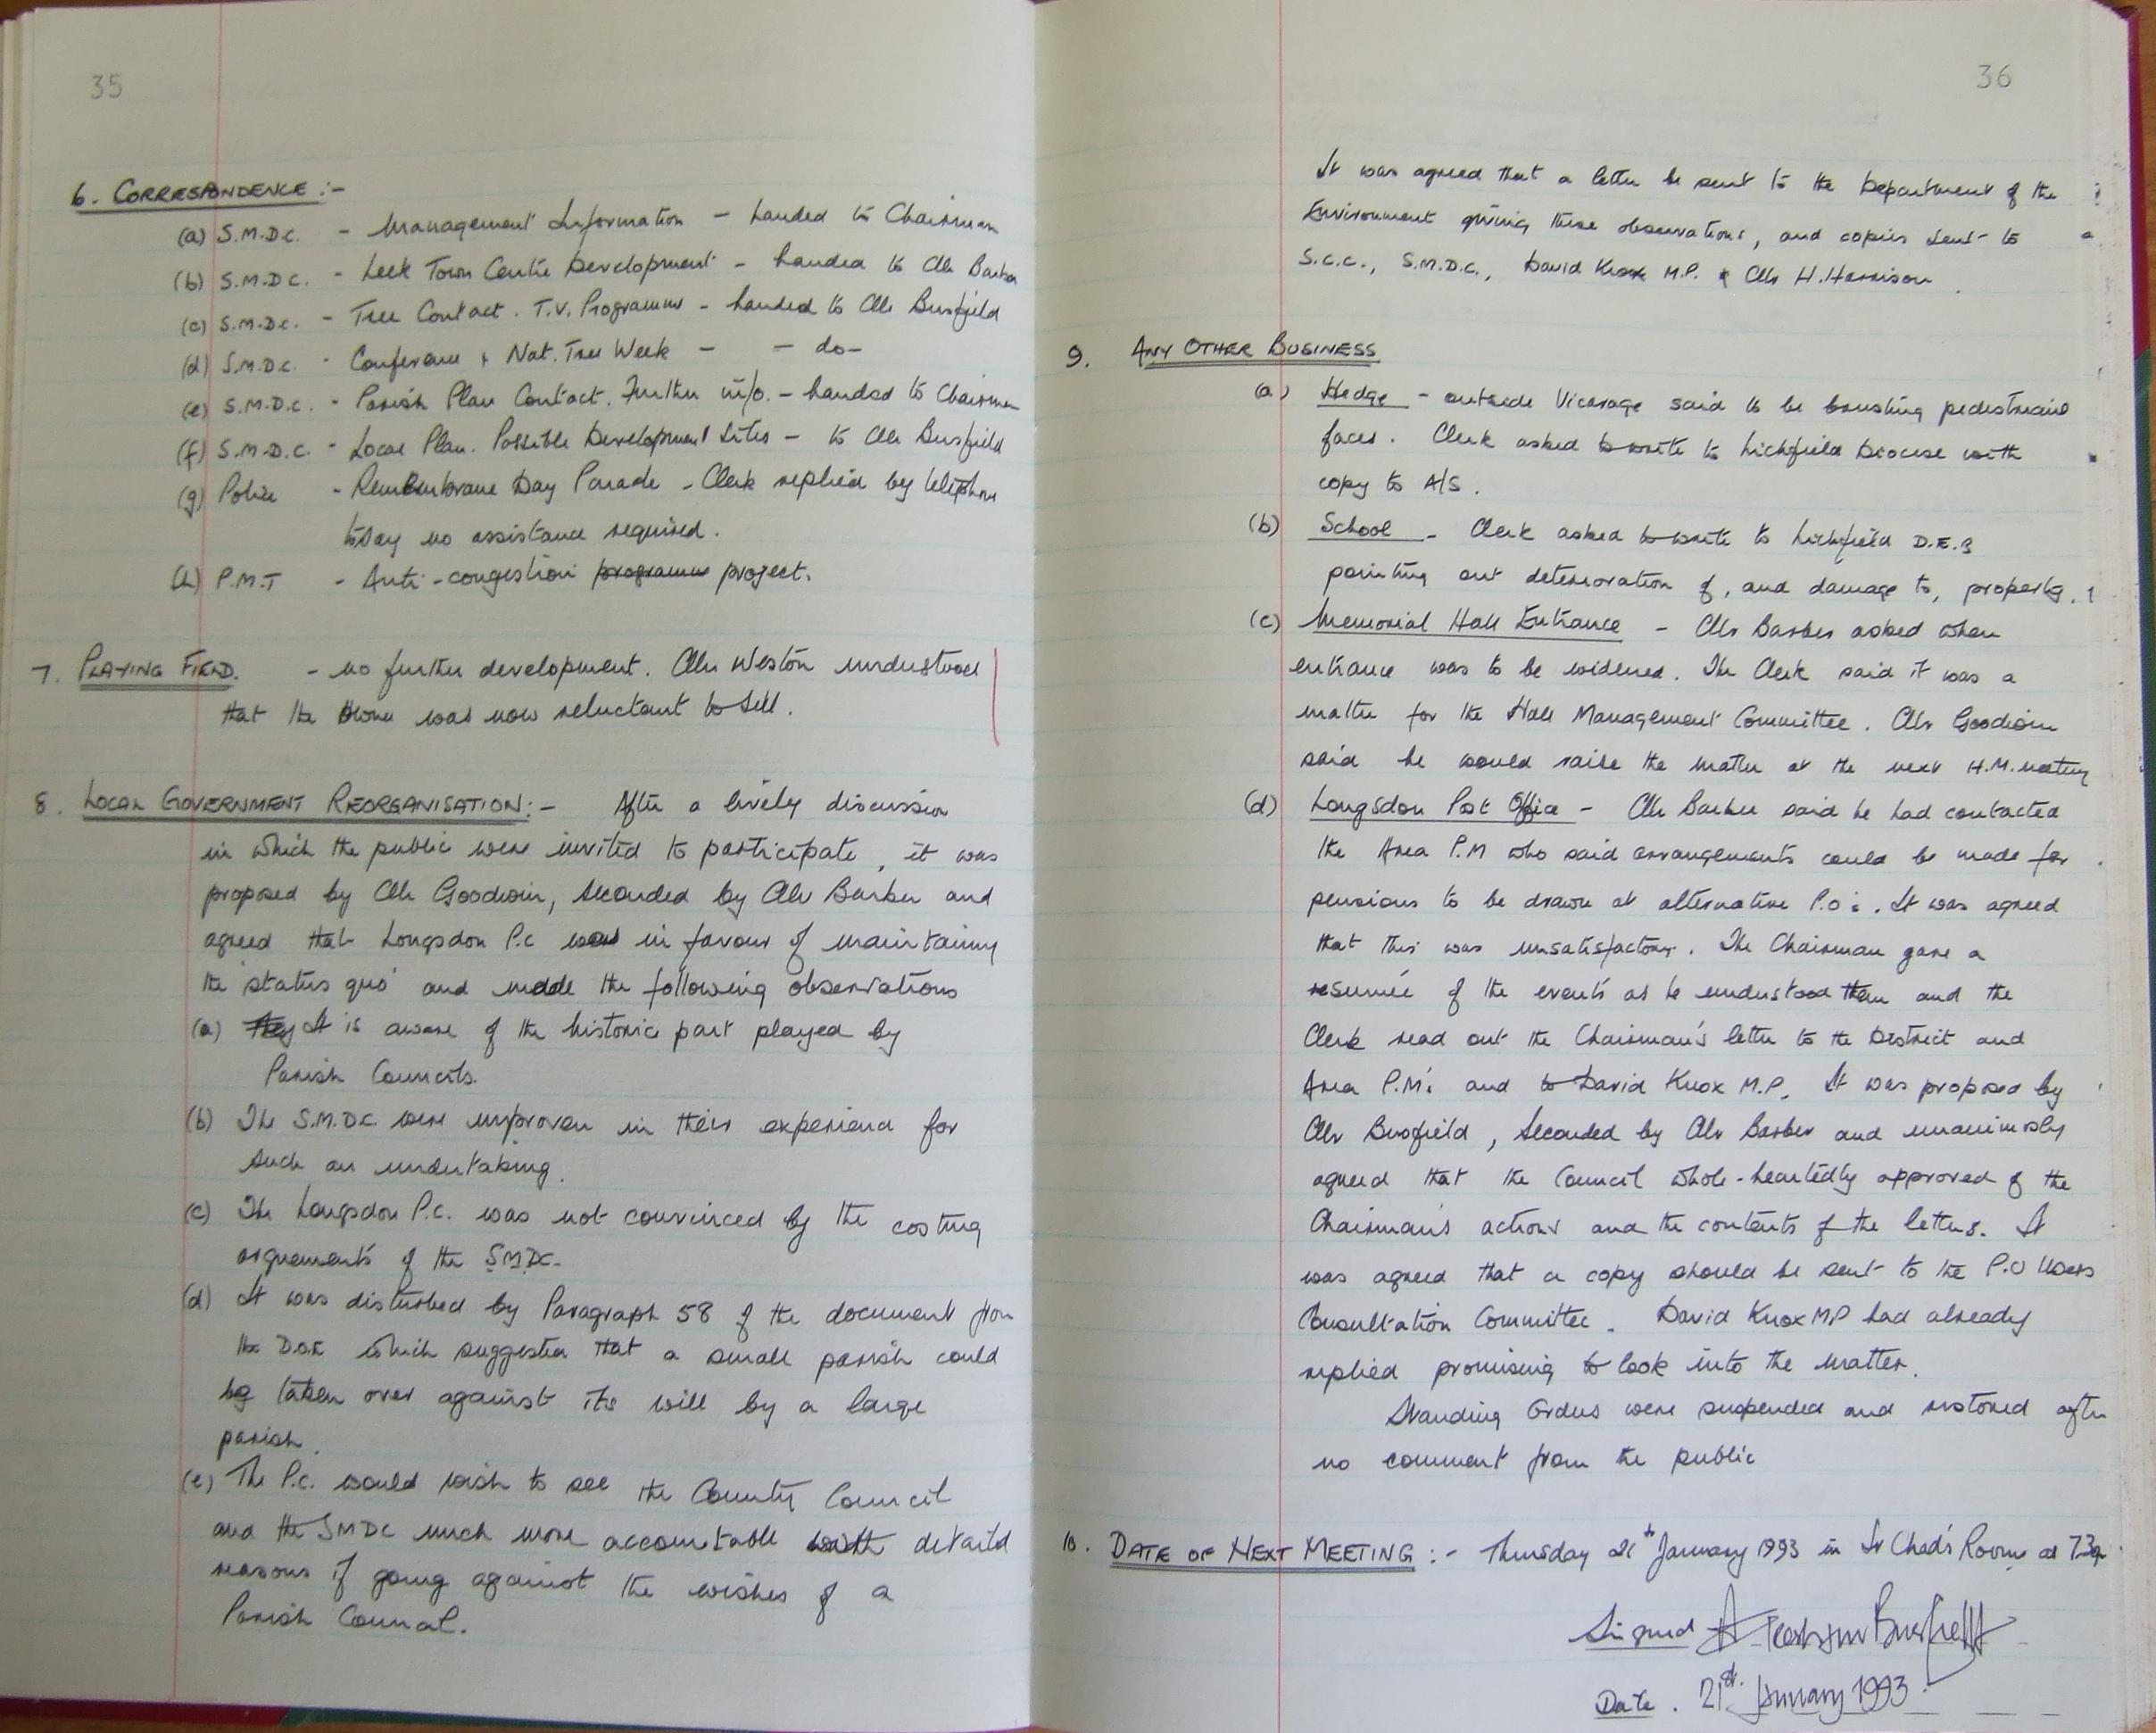 35
6. CORRESPONDENCE :-
(a) S.M.D.C. - Management Information - handed to Chairman
(b) S.M.D.C. - Leek Town Centre Development - handed to Cllr Barber
(c) S.M.D.C. - Tree Contact. T.V. Programme - handed to Cllr Busfield
(d) S.M.D.C. - Conference & Nat. Tree Week - - do -
(e) S.M.D.C. - Parish Plan Contact. Further info. - handed to Chairman
(f) S.M.D.C. - Local Plan. Possible Development Sites - to Cllr Busfield
(g) Police - Remembrance Day Parade - Clerk replied by telephone
today no assistance required.
(h) P.M.T - Anti-congestion programme project.
7. PLAYING FIELD. - no further development. Cllr Weston understood
that the owner was now reluctant to sell.
8. LOCAL GOVERNMENT REORGANISATION:- After a lively discussion
in which the public were invited to participate, it was
proposed by Cllr Goodwin, seconded by Cllr Barber and
agreed that Longsdon P.C was in favour of maintaining
the 'status quo' and made the following observations
(a) They It is aware of the historic part played by
Parish Councils.
(b) The S.M.D.C. were unproven in their experience for
such an undertaking.
(c) The Longsdon P.C. was not convinced by the costing
arguements of the S.M.D.C.
(d) It was disturbed by Paragraph 58 of the document from
the D.O.E which suggested that a small parish could
be taken over against its will by a large
parish.
(e) The P.C. would wish to see the County Council
and the SMDC much more accountable with detailed
reasons if going against the wishes of a
Parish Council.
36
It was agreed that a letter be sent to the Department of the
Environment giving these observations, and copies sent to
S.C.C., S.M.D.C., David Knox M.P. & Cllr H. Harrison.
9. ANY OTHER BUSINESS
(a) Hedge - outside Vicarage said to be brushing pedestrians
faces. Clerk asked to write to Lichfield Diocese with
copy to A/S.
(b) School - Clerk asked to write to Lichfield D.E.B
pointing out deterioration of, and damage to, property.
(c) Memorial Hall Entrance - Cllr Barber asked when
entrance was to be widened. The Clerk said it was a
matter for the Hall Management Committee. Cllr Goodwin
said he would raise the matter at the next H.M. meeting
(d) Longsdon Post Office - Cllr Barber said he had contacted
the Area P.M who said arrangements could be made for
pensions to be drawn at alternative P.O's. It was agreed
that this was unsatisfactory. The Chairman gave a
resumée of the events as he understood them and the
Clerk read out the Chairman's letter to the District and
Area P.M's and to David Knox M.P. It was proposed by
Cllr Busfield, seconded by Cllr Barber and unanimously
agreed that the Council whole-heartedly approved of the
Chairman's actions and the contents of the letters. It
was agreed that a copy should be sent to the P.O Users
Consultation Committee. David Knox MP had already
replied promising to look into the matter.
Standing Orders were suspended and restored after
no comment from the public
10. DATE OF NEXT MEETING :- Thursday 21st January 1993 in St Chad's Room at 7.30p
Signed A Busfield
Date. 21st. January 1993